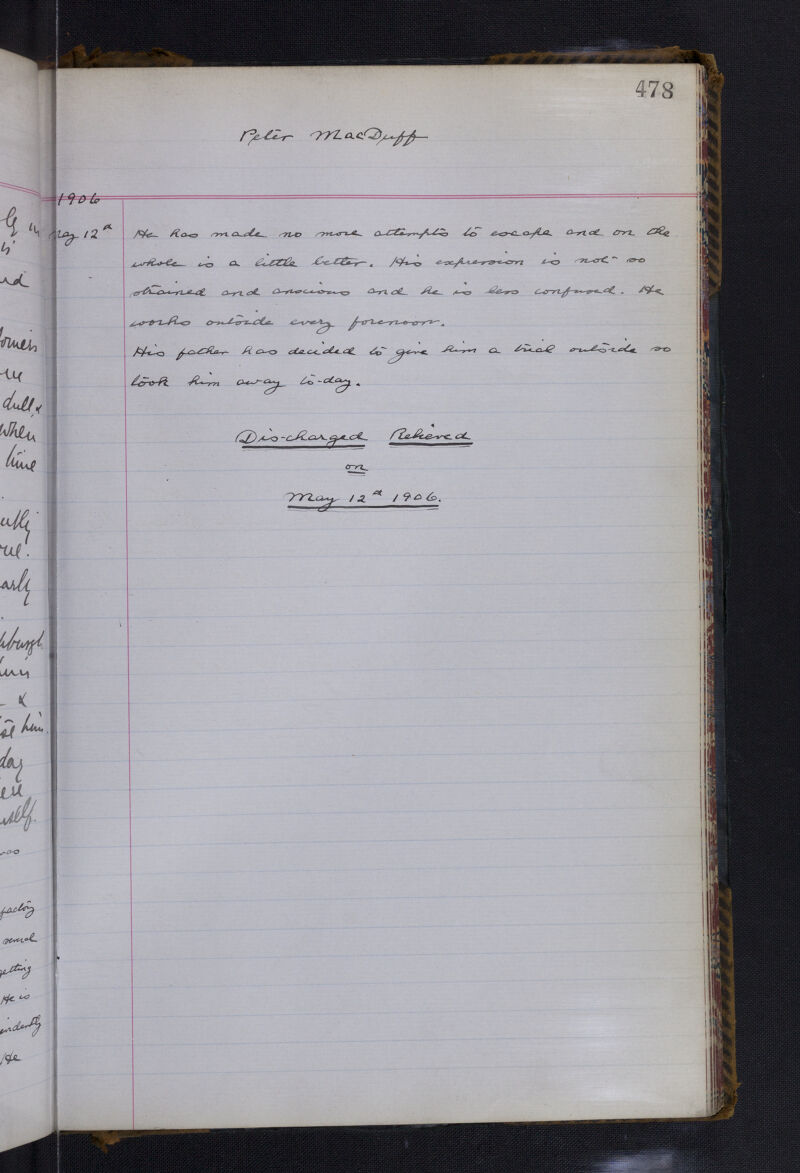 478
Peter MacDuff
1906
May 12th He has made no more attempts to escape and on the
whole is a little better. His expression is not so
strained and anxious and he is less confused. He
works outside every forenoon.
His father has decided to give him a trial outside so
took him away to-day.
Discharged Relieved
on
May 12th 1906.
dull, &
when
time
him.
day
was
getting
He is
He